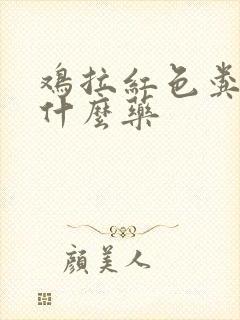 鸡拉红色粪
什麼藥
顏美人